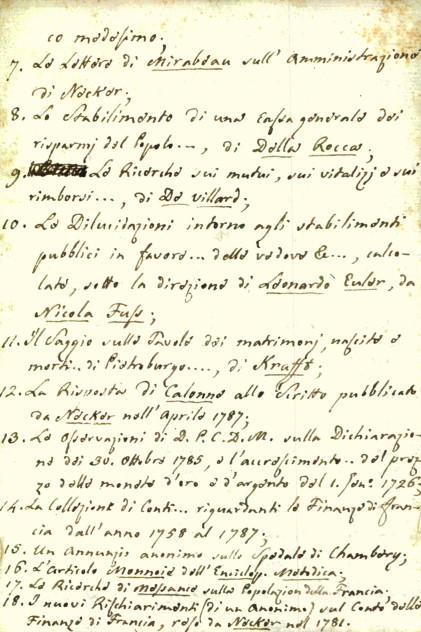 co medesimo;
7. Le Lettere di Mirabeau sull' Amministrazione
di Necker;
8. Lo Stabilimento di una cassa generale dei
risparmj del Popolo..., di Della Rocca;
9. Le Ricerche sui mutui, sui vitalizj e sui
rimborsi..., di De villard;
10. Le Dilucidazioni intorno agli stabilimenti
pubblici in favore... delle vedove &..., calco-
late, sotto la direzione di Leonardo Euler, da
Nicola Fuss;
11. Il Saggio sulle Tavole dei matrimonj, nascite e
morti.. di Pietroburgo...., di Krafft;
12. La Risposta di Calonne allo Scritto pubblicato
da Necker nell' Aprile 1787;
13. Le Osservazioni di D. P. C. D. M. sulla Dichiarazio-
ne dei 30. Ottobre 1785, e l'accrescimento.. del prez-
zo delle monete d'oro e d'argento del 1. Gen.° 1726;
14. La Collezione di Conti... riguardanti le Finanze di Fran-
cia dall' anno 1758 al 1787;
15. Un Annunzio anonimo sullo Spedale di Chambery;
16. L'articolo Monnoie dell' Enciclop. Metodica;
17. Le Ricerche di Messance sulla Popolazion della Francia;
18. I nuovi Rischiarimenti (di un Anonimo) sul Conto delle
Finanze di Francia, reso da Necker nel 1781.